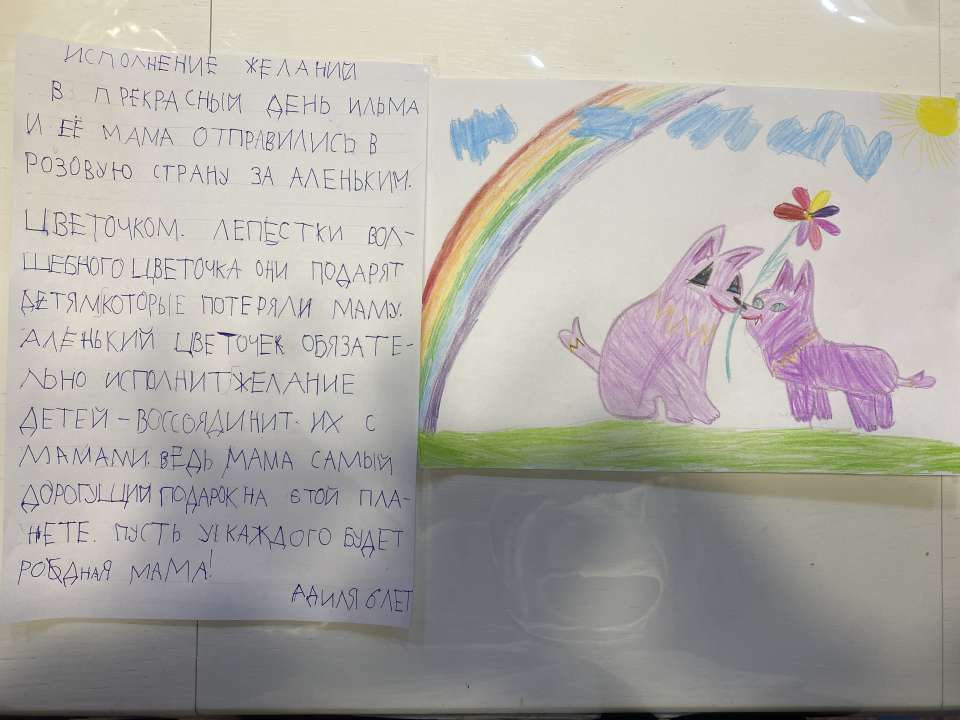 ИСПОЛНЕНИЕ ЖЕЛАНИЙ
В ПРЕКРАСНЫЙ ДЕНЬ ИЛЬМА
И ЕЁ МАМА ОТПРАВИЛИСЬ В
РОЗОВУЮ СТРАНУ ЗА АЛЕНЬКИМ.
ЦВЕТОЧКОМ. ЛЕПЕСТКИ ВОЛ-
ШЕБНОГО ЦВЕТОЧКА ОНИ ПОДАРЯТ
ДЕТЯМ,КОТОРЫЕ ПОТЕРЯЛИ МАМУ.
АЛЕНЬКИЙ ЦВЕТОЧЕК ОБЯЗАТЕ-
ЛЬНО ИСПОЛНИТ ЖЕЛАНИЕ
ДЕТЕЙ – ВОССОЯДИНИТ. ИХ С
МАМАМИ. ВЕДЬ МАМА САМЫЙ
ДОРОГУЩИЙ ПОДАРОК НА ЭТОЙ ПЛА-
НЕТЕ. ПУСТЬ У КАЖДОГО БУДЕТ
РОДНАЯ МАМА!
АДИЛЯ 6 ЛЕТ